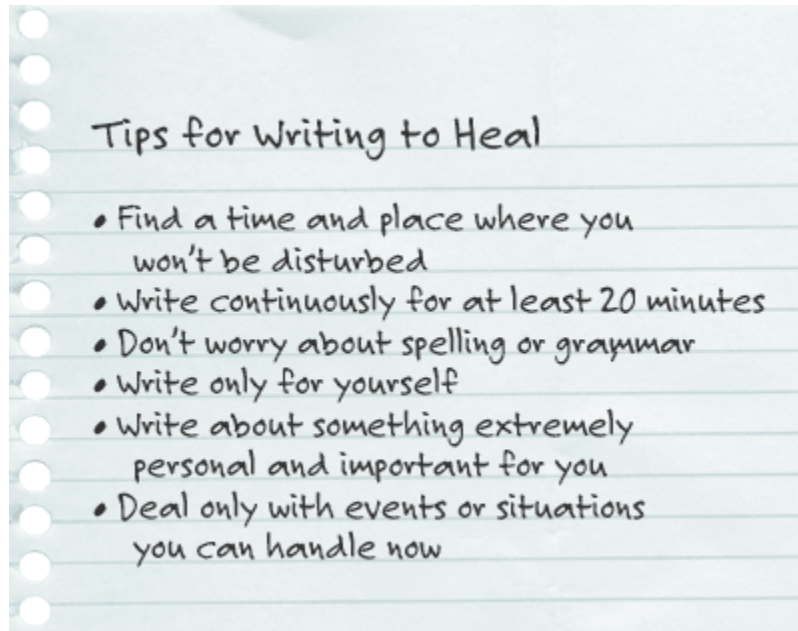 Tips for Writing to Heal
• Find a time and place where you
won't be disturbed
• Write continuously for at least 20 minutes
• Don't worry about spelling or grammar
• Write only for yourself
• Write about something extremely
personal and important for you
• Deal only with events or situations
you can handle now